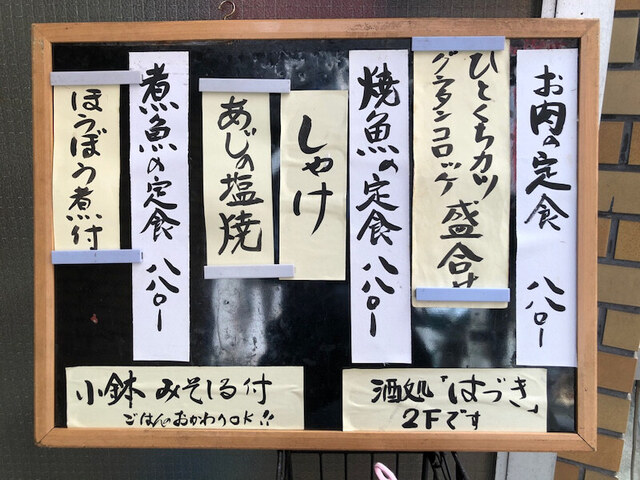 お肉の定食 八八〇ー
ひとくちカツ
グラタンコロッケ 盛合せ
焼魚の定食 八八〇ー
しゃけ
あじの塩焼
煮魚の定食 八八〇ー
ほうぼう煮付
小鉢 みそしる付
ごはんのおかわりOK!!
酒処「はづき」
2Fです